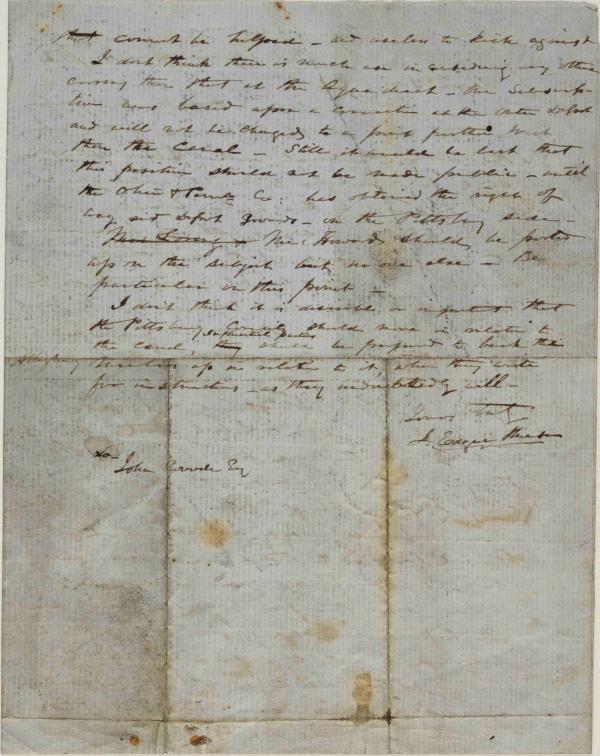 that cannot be helped – and useless to kick against
I don't think there is much use in considering any other
crossing than that at the Aqueduct – The Subscrip-
tion was based upon a connection at the Outer Depot
and will not be changed to a point further West
than the Canal – Still it would be best that
this position should not be made public – until
the Ohio & Penna Co: has obtained the right of
way and Depot grounds – on the Pittsburg side –
Mr: Howard should be posted
up on the subject but no one else – Be
particular on this point –
I don't think it is desirable or important that
the Pittsburg Councils should move in relation to
influential parties
the canal, they should be prepared to back the
Allegheny up in relation to it, when they write
for instructions – as they undoubtedly will –
Yours Truly
J. Edgar Thomson
To
John Covode Esq